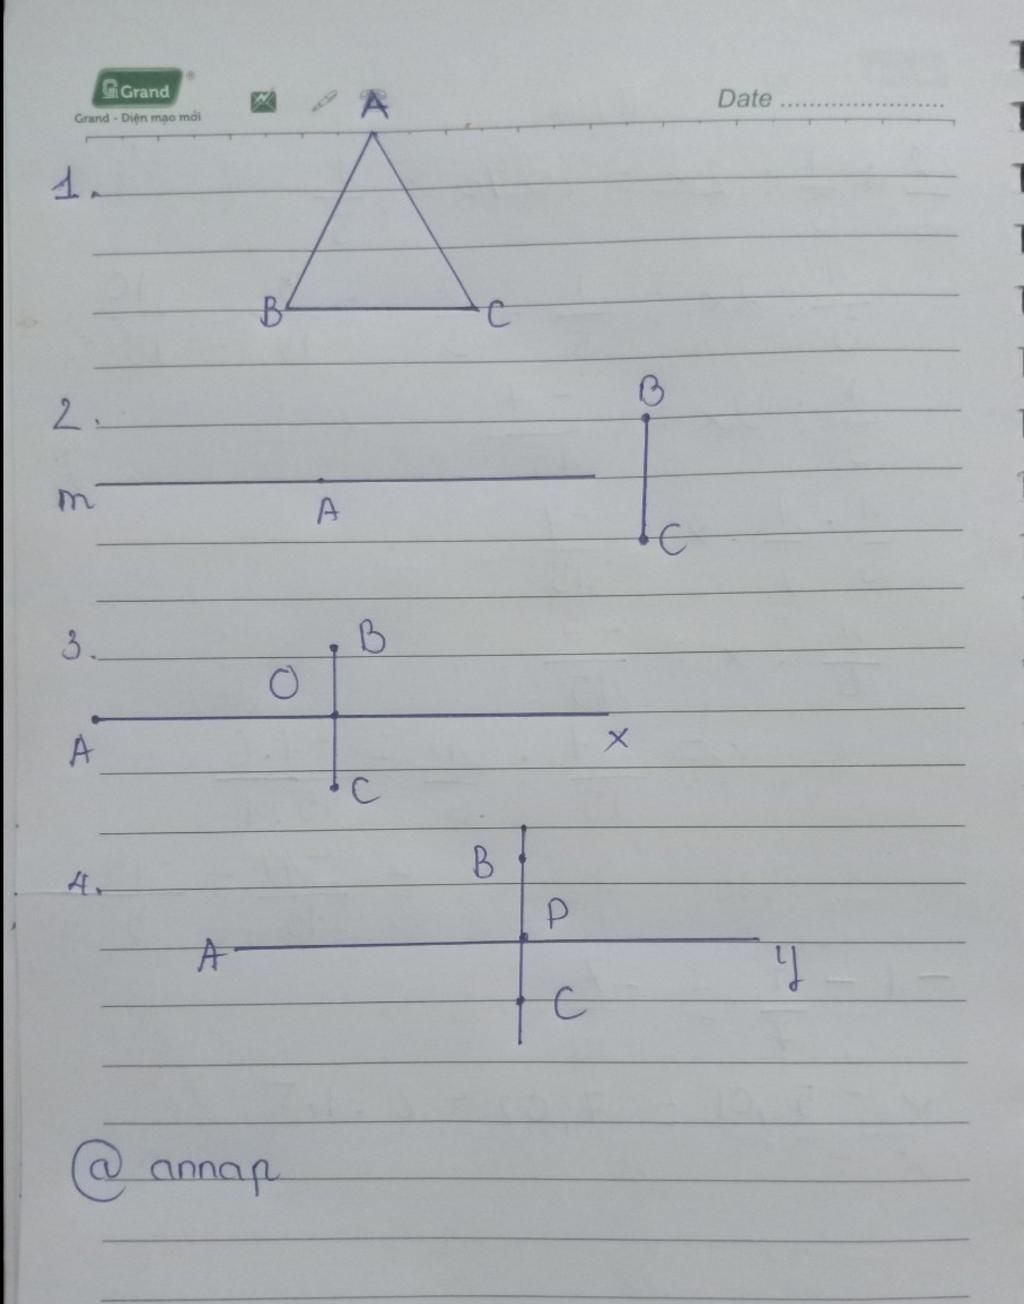 Grand
Grand - Diện mạo mới
Date ........................
A
1.
B C
2.
B
m
A
C
3.
B
O
A
x
C
4.
B
P
A
y
C
@ annap